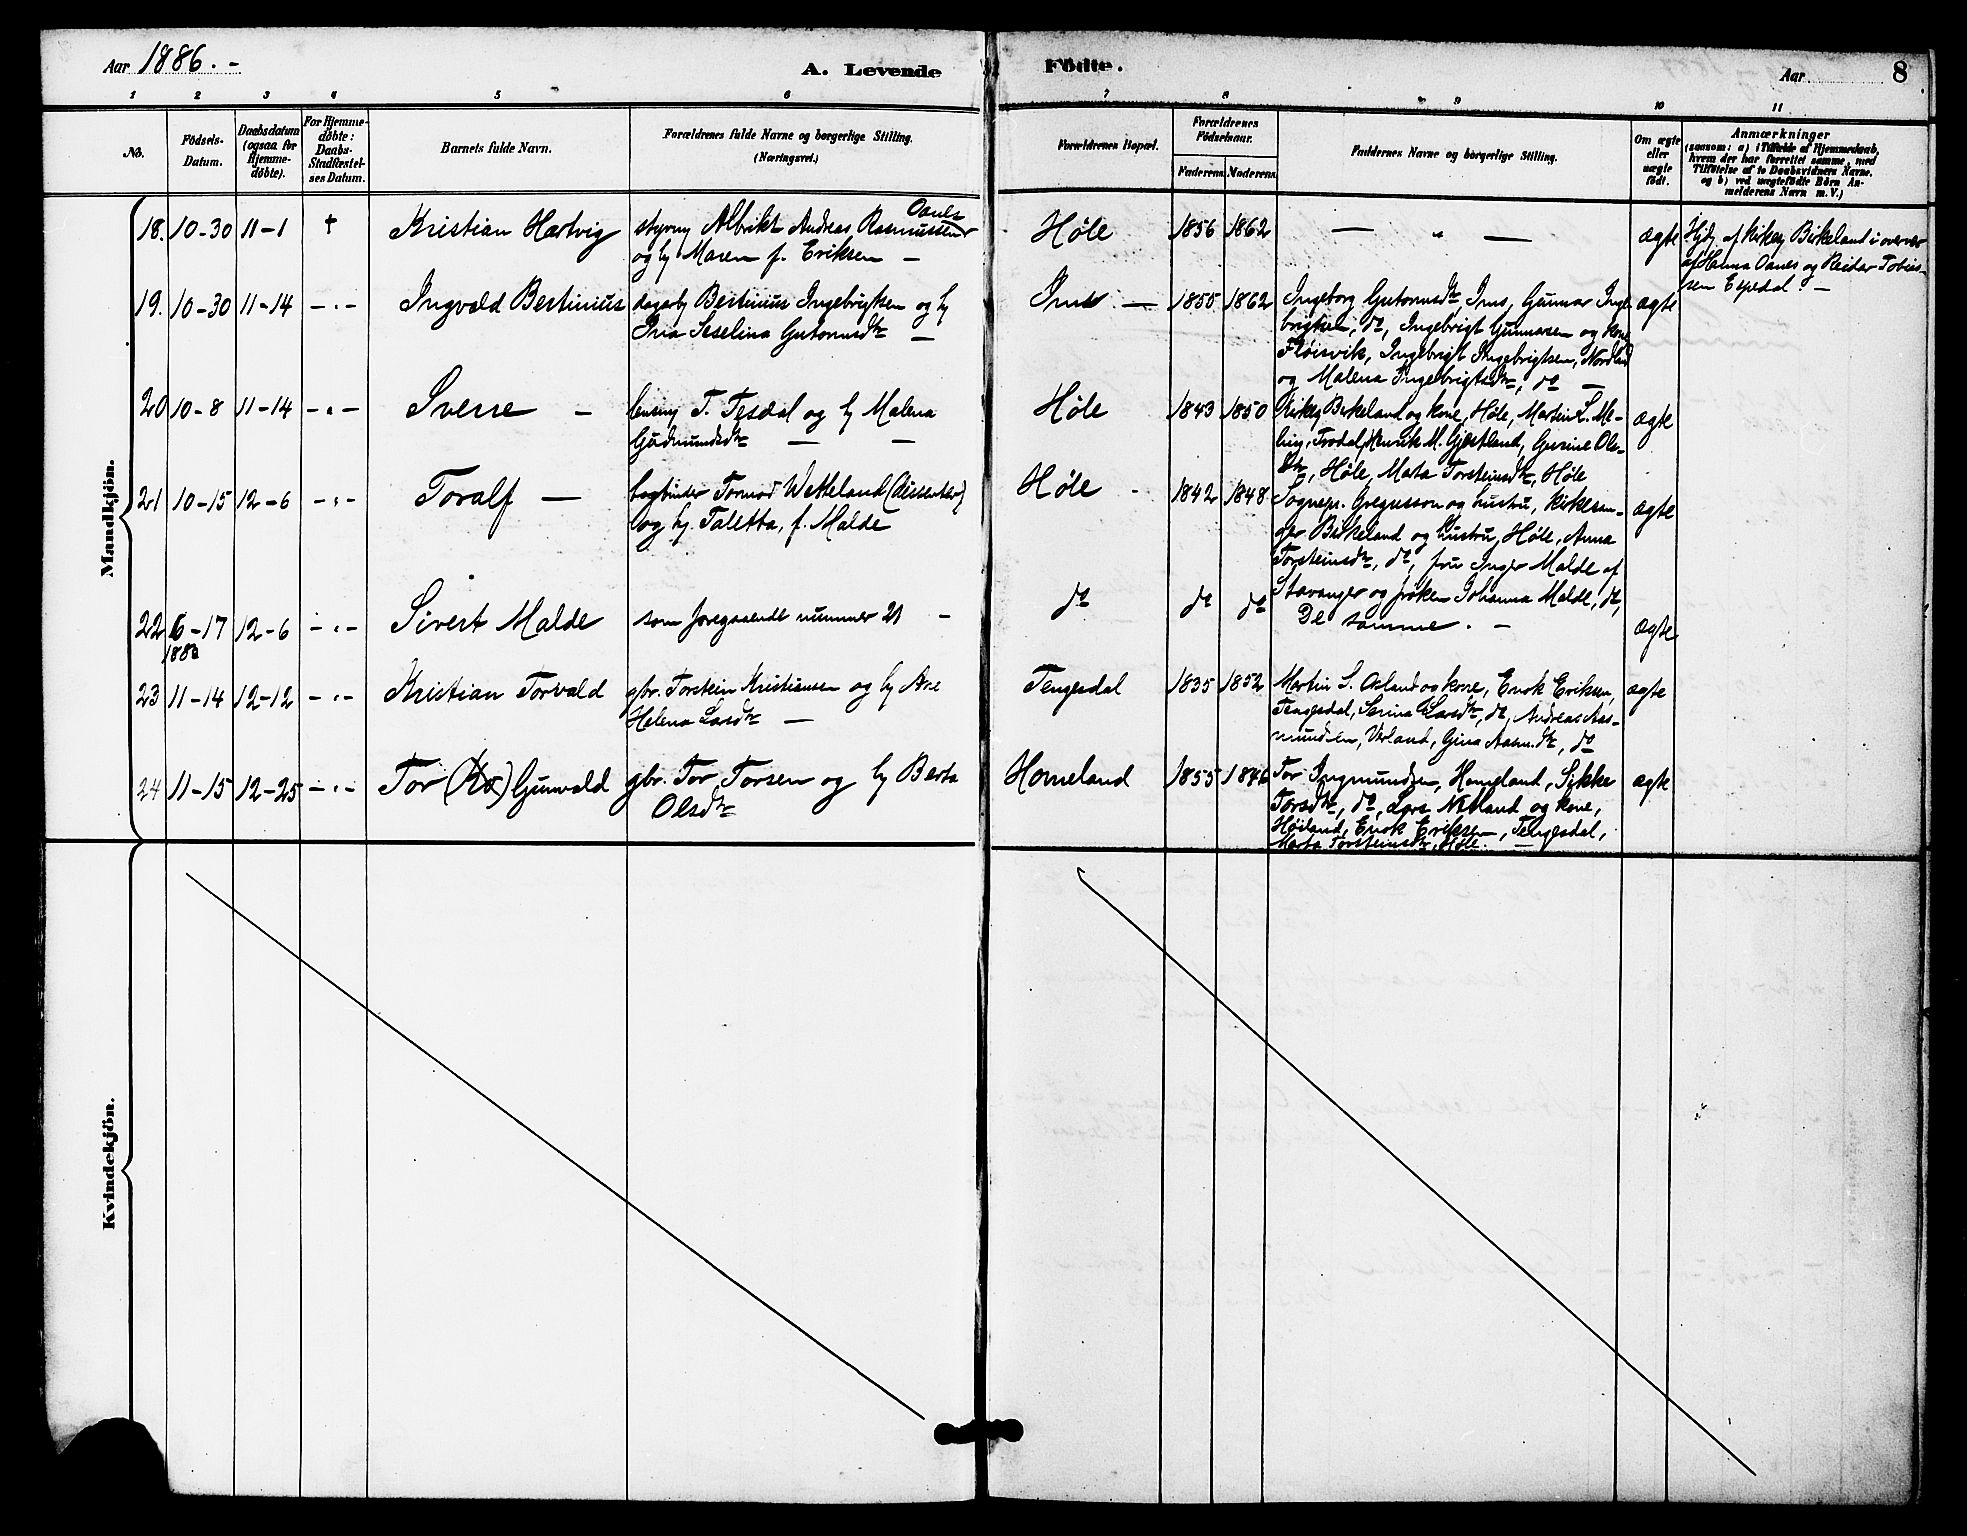 Aar 1886. -
A. Levende
Födte.
Aar
8
1 2 3 4 5 6 7 8 9 10 11
No.
Födsels-
Datum.
Daabsdatum
(ogsaa for
Hjemme-
döbte).
For Hjemme-
döbte:
Daabs-
Stadfæstel-
ses Datum.
Barnets fulde Navn.
Forældrenes fulde Navne og borgerlige Stilling.
(Næringsvei.)
Forældrenes Bopæl.
Forældrenes
Födselsaar.
Faderens. Moderens.
Faddernes Navne og borgerlige Stilling.
Om ægte
eller
uægte
födt.
Anmærkninger
(saasom: a) i Tilfælde af Hjemmedaab,
hvem der har forrettet samme, med
Tilföielse af to Daabsvidners Navne,
og b) ved uægtefödte Börn An-
melderens Navn m. V.)
Mandkjön.
18. 10-30 11-1 +
Kristian Hartvig
Oanes
Albrikt Andreas Rasmussen
og h. Maren f. Eriksen -
Høle
1856 1862
— " —
ægte
Hjdj. af Kirkes. Birkeland i overvær
af Hanna Oanes og Reidar Tobias-
sen Espedal. -
19. 10-30 11-14 - " -
Ingvald Bertinius
Bertinius Ingebrigtsen og h
Ina Seselina Gutormsdtr -
Ims -
1855 1862
Ingeborg Gutormsdtr Ims, Gunnar Inge-
brigtsen, do, Ingebrigt Gunnarsen og kone
Fløisvik, Ingebrigt Ingebrigtsen, Nordland
og Malena Ingebrigtsdtr, do -
ægte
20 10-8 11-14 - " -
Sverre -
T. Tesdal og h Malena
Gudmundsdtr - -
Høle
1843 1850
Kirkes Birkeland og kone, Høle, Martin L. Me-
ling, Henrik M. Gjestland, Gurine Ols-
dtr, Høle, Marta Torsteinsdtr, Høle
ægte
21 10-15 12-6 - " -
Toralf -
bogbinder Tormod Wetteland (dissenter)
og h. Taletta, f. Malde
Høle -
1842 1848
Sognepr. Gregersson og hustru, Kirkesan-
ger Birkeland og hustru, Høle, Anna
Torsteinsdtr, do, fru Inger Malde af
Stavanger og frøken Johanna Malde, do,
ægte
22 6-17 12-6 - " -
Sivert Malde
som foregaaende nummer 21 -
do
do do
De samme. -
ægte
23 11-14 12-12 - " -
Kristian Torvald
gbr. Torstein Kristiansen og h Ane
Helena Larsdtr -
Tengesdal
1835 1852
Martin S. Osland og kone, Enok Eriksen,
Tengesdal, Serina Larsdtr, do, Andreas Aas-
mundsen, Virland, Gina Aasm.dtr, do
ægte
24 11-15 12-25 - " -
Tor Gunvald
gbr. Tor Torsen og h Berta
Olsdtr
Homeland
1855 1846
Tor Ingmundsen, Homeland, Sikke
Torsdtr, do, Lars Nætland og kone,
Høiland, Enok Eriksen, Tengesdal,
Marta Torsteinsdtr, Høle. -
ægte
Kvindekjön.